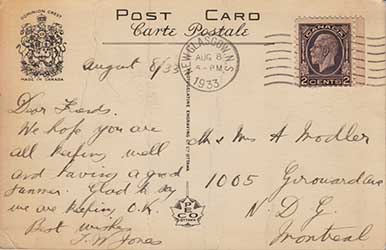 POST CARD
Carte Postale
DOMINION CREST
MADE IN CANADA
NEW GLASGOW, N.S.
AUG 8
PM
1933
CANADA
2 CENTS 2
August 8/33
Dear Friends.
We hope you are
all keeping well
and having a good
summer. Glad to say
we are keeping O.K.
Best wishes
J.W. Jones
PECO
OTTAWA
Mr & Mrs A Modler
1005 Girouard Ave
N. D. G.
Montreal